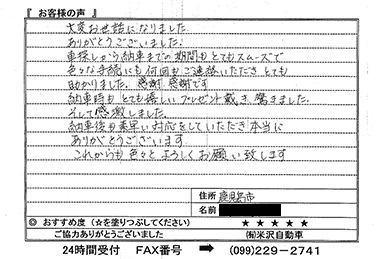 『 お客様の声 』
大変お世話になりました。
ありがとうございました!
車探しから納車までの期間もとてもスムーズで
色々な手続にも何回もご連絡いただき とても
助かりました。感謝 感謝です
納車時も とても嬉しいプレゼント戴き、驚きました。
そして感激しました。
納車後も素早い対応をしていただき 本当に
ありがとうございます。
これからも色々と よろしくお願い致します
住所 鹿児島市
名前
◎ おすすめ度(☆を塗りつぶしてください) ★ ★ ★ ★ ★
ご協力ありがとうございました ㈲米沢自動車
24時間受付 FAX番号 ➡ (099)229−2741